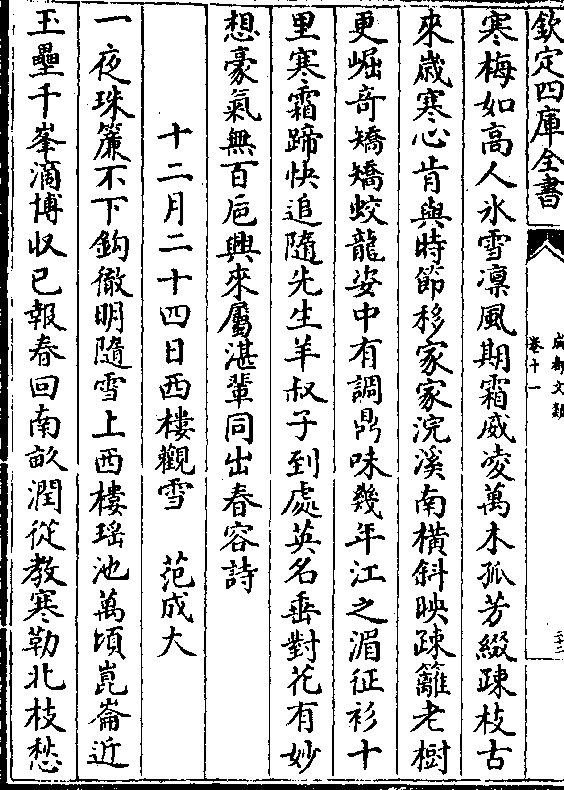 欽定四庫全書
成都文類
卷十一
寒梅如高人氷雪凛風期霜威凌萬木孤芳綴踈枝古
來歳寒心肯與時節移家家浣溪南横斜映踈籬老樹
更崛竒矯矯蛟龍姿中有調鼎味幾年江之湄征衫十
里寒霜蹄快追隨先生羊叔子到處英名垂對花有妙
想豪氣無百巵興來屬湛輩同出春容詩
十二月二十四日西樓觀雪 范成大
一夜珠簾不下鈎徹明隨雪上西樓瑶池萬頃崑崙近
玉壘千峯滴博收已報春回南畝潤從教寒勒北枝愁